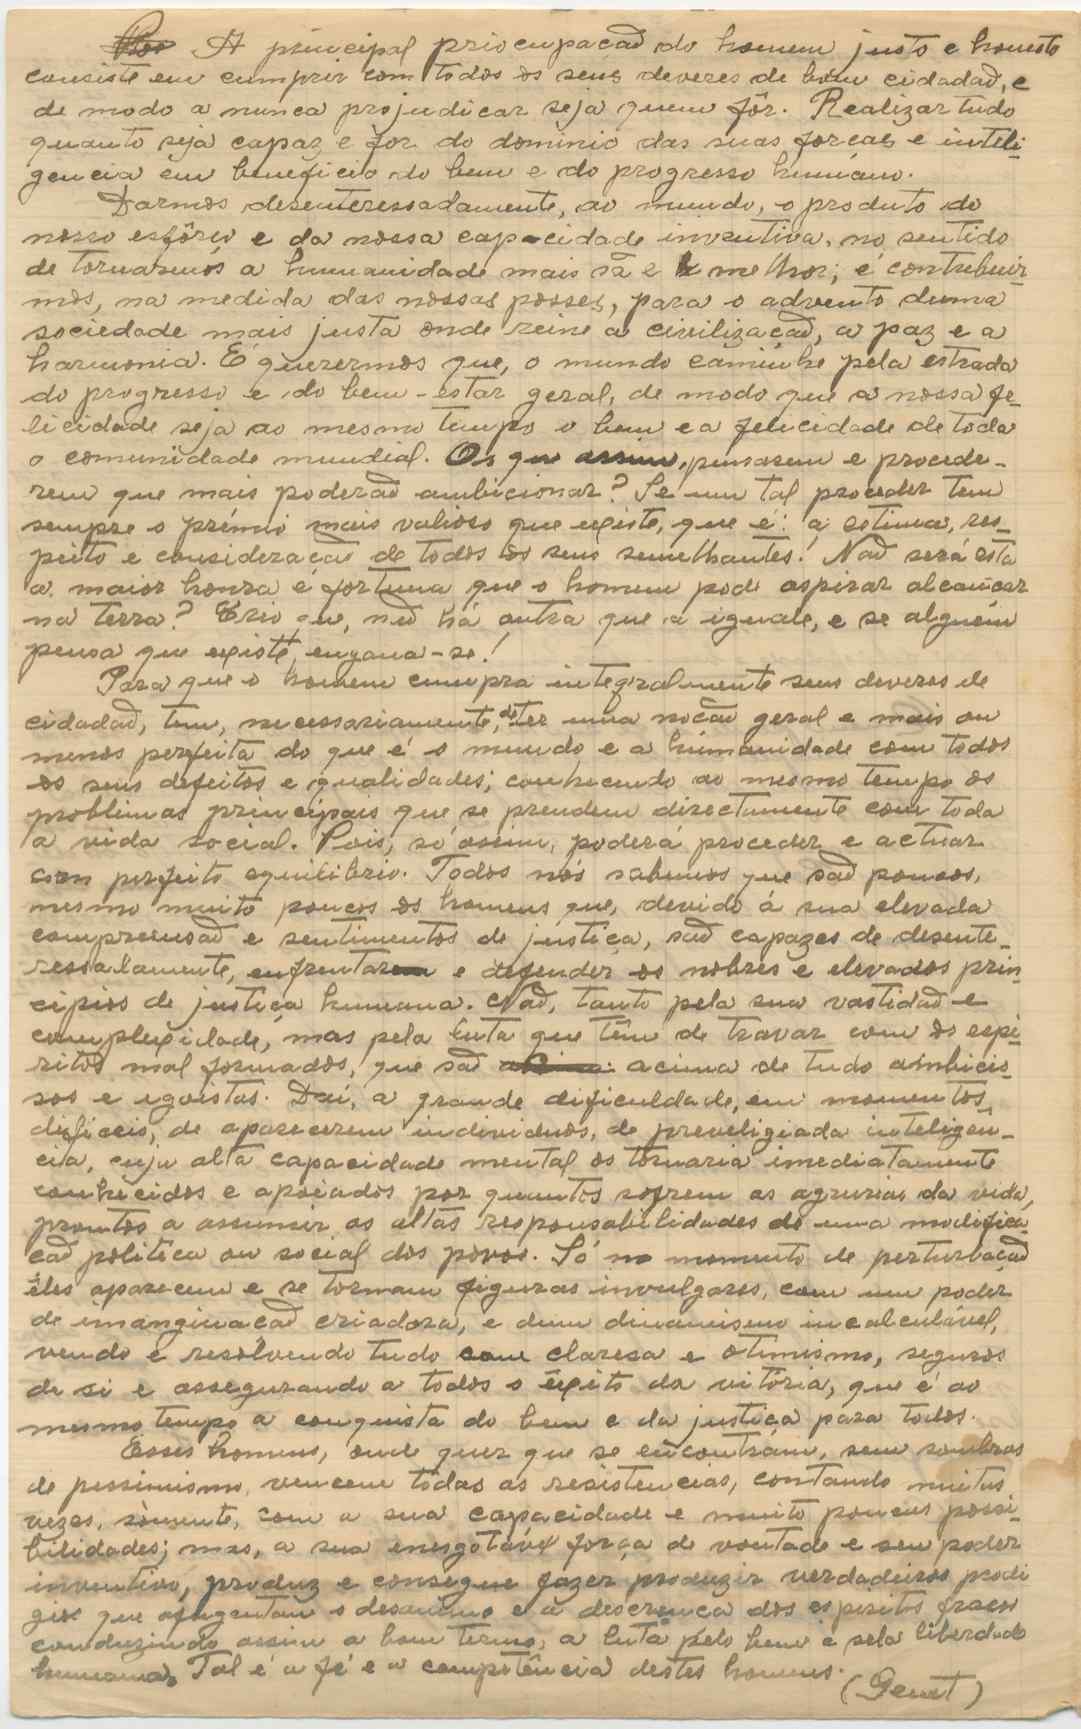 A principal priocupação do homem justo e honesto
consiste em cumprir com todos os seus deveres de bom cidadaõ, e
de modo a nunca projudicar seja quem fôr. Realizar tudo
quanto seja capaz e for do dominio das suas forças e inteli-
gencia em beneficio do bem e do progresso humano.
Darmos desenteressadamente, ao mundo, o produto do
nosso esfôrço e da nossa capacidade inventiva, no sentido
de tornarmos a humanidade mais sã e melhor; é contribuir-
mos, na medida das nossas posses, para o advento duma
sociedade mais justa onde reine a civilizaçaõ, a paz e a
harmonia. É querermos que, o mundo caminhe pela estrada
do progresso e do bem-estar geral, de modo que a nossa fe-
licidade seja ao mesmo tempo o bem e a felicidade de toda
o comunidade mundial. Os que assim, pensarem e procede-
rem que mais poderaõ ambicionar? Se um tal proceder tem
sempre o prémio mais valioso que existe, que é: a estima, res-
peito e consideraçaõ de todos os seus semelhantes! Naõ será esta
a maior honra e fortuna que o homem pode aspirar alcançar
na terra? Creio que, naõ há outra que a iguale, e se alguém
pensa que existe, engana-se!
Para que o homem cumpra integralmente seus deveres de
cidadaõ, tem, necessariamente, de ter uma noçaõ geral e mais ou
menos perfeita do que é o mundo e a humanidade com todos
os seus defeitos e qualidades; conhecendo ao mesmo tempo os
problemas principais que se prendem directamente com toda
a vida social. Pois, só assim, poderá proceder e actuar
com perfeito equilibrio. Todos nós sabemos que saõ poucos,
mesmo muito poucos os homens que, devido á sua elevada
compreensaõ e sentimentos de justiça, saõ capazes de desente-
ressadamente, enfrentar e defender os nobres e elevados prin
cipios de justiça humana. Naõ, tanto pela sua vastidaõ e
complexidade, mas pela luta que têm de travar com os espi-
ritos mal formados, que saõ acima de tudo ambicio-
sos e egoistas. Daí, a grande dificuldade, em momentos
dificeis, de aparecerem individuos, de previligiada inteligen-
cia, cuja alta capacidade mental os tornaria imediatamente
conhecidos e apoiados por quantos sofrem as agruras da vida,
prontos a assumir as altas responsabilidades de uma modifica-
çaõ politica ou social dos povos. Só no momento de perturbaçaõ
êles aparecem e se tornam figuras invulgares, com um poder
de imanginaçaõ criadora, e dum dinamismo incalculável,
vendo e resolvendo tudo com claresa e otimismo, seguros
de si e assegurando a todos o êxito da vitória, que é ao
mesmo tempo a conquista do bem e da justiça para todos.
Esses homens, onde quer que se encontram, sem sombras
de pessimismo, vencem todas as resistencias, contando muitas
vezes, sòmente, com a sua capacidade e muito poucas possi-
bilidades; mas, a sua enesgotável força de vontade e seu poder
inventivo, produz e consegue fazer produzir verdadeiros prodi
gios que afugentam o desanimo e a descrença dos espiritos fracos
conduzindo assim a bom termo, a luta pelo bem e pela liberdade
humana. Tal é a fé e a competência destes homens.